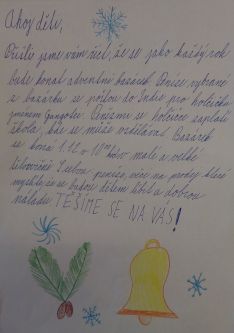 Ahoj děti,
Přišli jsme vám říct, že se jako každý rok
bude konat adventní bazárek. Peníze, vybrané
z bazárku se pošlou do Indie pro holčičku
jménem Gangothri. Penězmi se holčice zaplatí
škola, kde se může vzdělávat. Bazárek
se koná 1.12 v 10 pro malé a velké
S sebou peníze, věci na prodej které
myslíte, že se budou dětem líbit a dobrou
náladu TĚŠÍME SE NA VÁS!